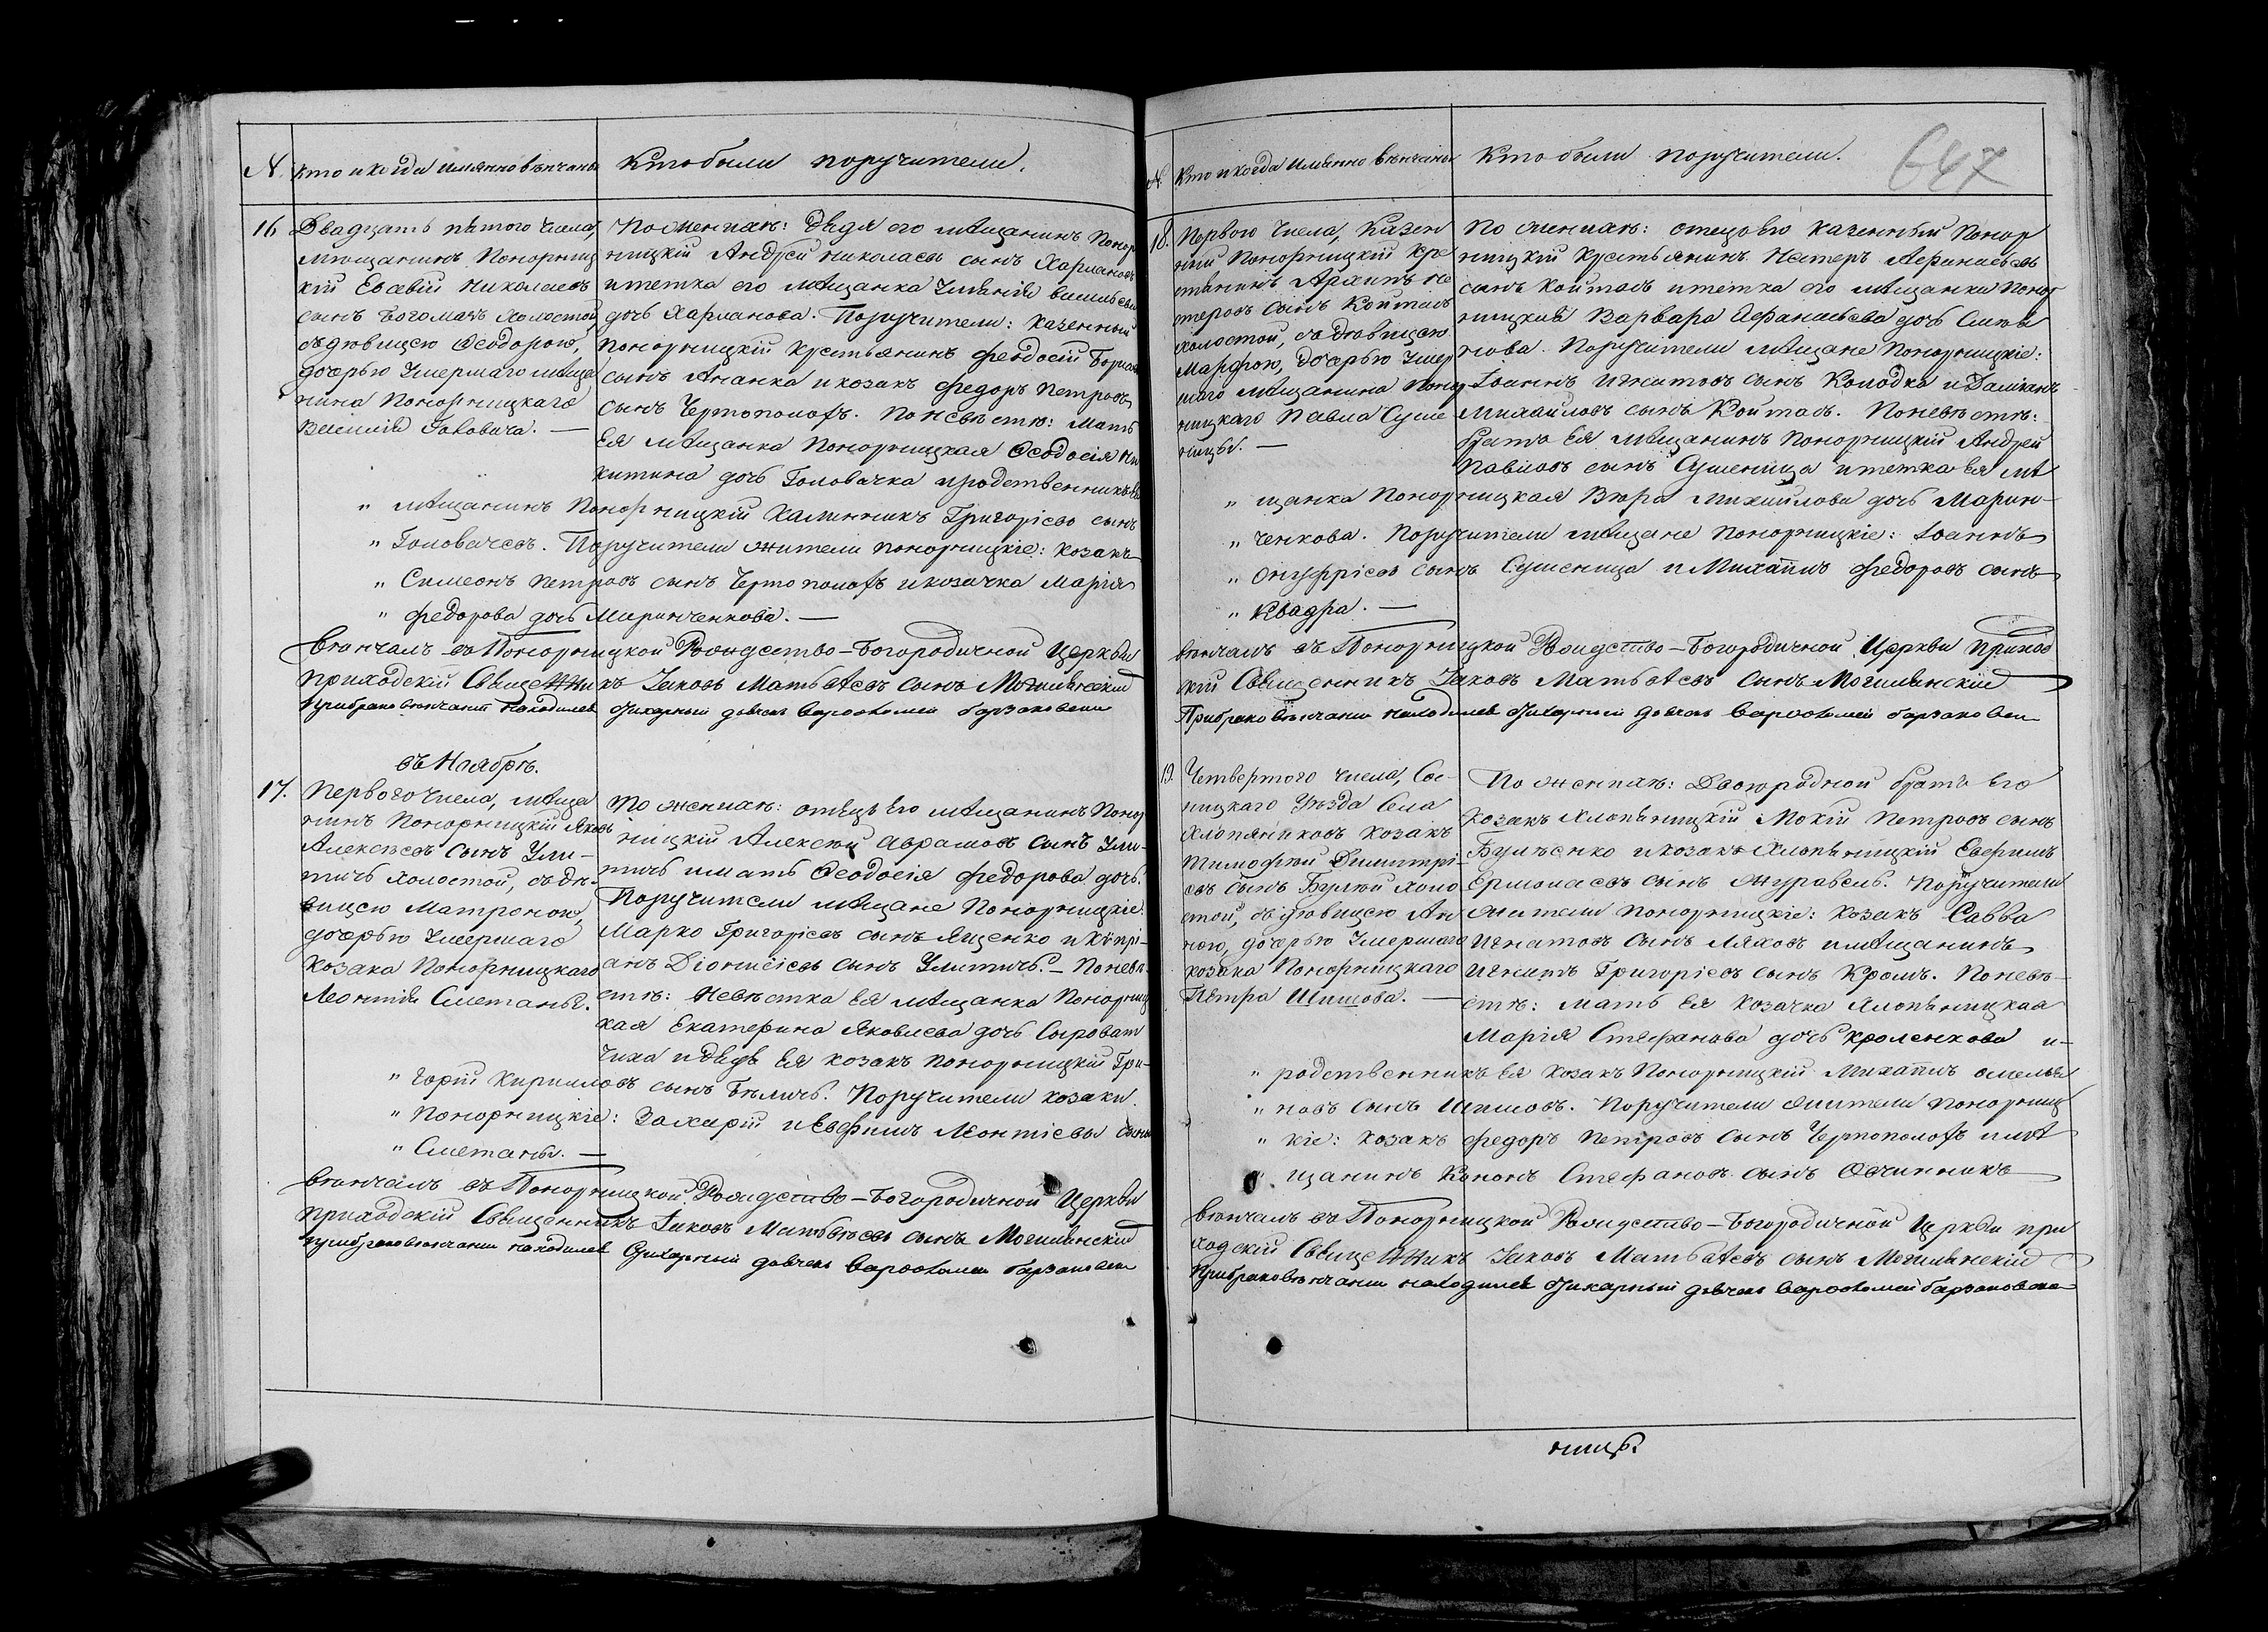 №. Кто и когда имянно вѣнчаны Кто были поручители.
16 Двадцать пятого числа,
мѣщанинъ Понорниц
кій Евсевій Николаевъ
сынъ Богомазъ холостой,
съ дѣвицею Ѳеодорою,
дочерью умершаго мѣща
нина Понорницкаго
Василія Головача. —
По женихѣ: дядя его мѣщанинъ Понор
ницкій Андрей Николаевъ сынъ Харлановъ
и тетка его мѣщанка Васильева
дочь Харланова. Поручители: казенный
Понорницкій крестьянинъ Феодосій
сынъ Ананка и козакъ Федоръ Петровъ
сынъ Чертополохъ. По невѣстѣ: мать
Ея мѣщанка Понорницкая Ѳеодосія Ни
китина дочь Головачка и родственникъ Ея
„ мѣщанинъ Понорницкій Калинникъ Григоріевъ сынъ
„ Головачевъ. Поручители жители Понорницкіе: козакъ
„ Симеонъ Петровъ сынъ Чертополохъ и козачка Марія
„ Федорова дочь Маринченкова. —
Вѣнчалъ въ Понорницкой Рождество-Богородичной Церкви
приходскій Священникъ Іаковъ Матвѣевъ сынъ Могилянскій
При браковѣнчаніи находился викарный дьячекъ Варѳоломей
въ Ноябрѣ.
17. Первого числа, мѣща
нинъ Понорницкій Яковъ
Алексѣевъ сынъ Ули-
тичъ холостой, съ дѣ-
вицею Матроною,
дочерью умершаго
козака Понорницкаго
Леонтія Сметаны.
По женихѣ: отецъ Его мѣщанинъ Понор
ницкій Алексѣй Аврамовъ сынъ Ули-
тичъ и мать Ѳеодосія Федорова дочь.
Поручители мѣщане Понорницкіе:
Марко Григоріевъ сынъ Яценко и Кипрі-
анъ Діонисіевъ сынъ Улитичъ. — По невѣ-
стѣ: Невѣстка Ея мѣщанка Понорниц
кая Екатерина Яковлева дочь Сыроват
чиха и дядь Ея козакъ Понорницкій Гри-
„ горій Кирилловъ сынъ Бѣличъ. Поручители козаки
„ Понорницкіе: Захарій и Евфимъ Леонтіевы сыны
„ Сметаны. —
Вѣнчалъ въ Понорницкой Рождество-Богородичной Церкви
приходскій Священникъ Іаковъ Матвѣевъ сынъ Могилянскій
При браковѣнчаніи находился викарный дьячекъ Варѳоломей
№. Кто и когда имянно вѣнчаны Кто были поручители. 647
18. Первого числа, казен
ный Понорницкій кре
стьянинъ Архипъ Не
стеровъ сынъ Койташъ
холостой, съ дѣвицею
Марфою, дочерью умер
шаго мѣщанина Понор
ницкаго Павла Суше
ницы. —
По женихѣ: отецъ Его казенный Понор
ницкій крестьянинъ Нестеръ Афанасьевъ
сынъ Койташъ и тетка его мѣщанка Понор
ницкая Варвара Афанасьева дочь
нова. Поручители мѣщане Понорницкіе:
Іоаннъ Игнатовъ сынъ Колодка и Даміанъ
Михайловъ сынъ Койташъ. По невѣстѣ:
братъ Ея мѣщанинъ Понорницкій Андрей
Павловъ сынъ Сушеница и тетка Ея мѣ
„ щанка Понорницкая Вѣра Михайлова дочь Марин-
„ ченкова. Поручители мѣщане Понорницкіе: Іоаннъ
„ Онуфріевъ сынъ Сушеница и Михаилъ Федоровъ сынъ
„ Квадра. —
Вѣнчалъ въ Понорницкой Рождество-Богородичной Церкви приход
скій Священникъ Іаковъ Матвѣевъ сынъ Могилянскій
При браковѣнчаніи находился викарный дьячекъ Варѳоломей
19. Четвертого числа, Сос-
ницкаго уѣзда села
Хлопяниковъ козакъ
Тимофѣй Димитрі-
евъ сынъ Булѣй холо
стой, съ дѣвицею Ан
ною, дочерью умершаго
козака Понорницкаго
Петра Шишова. —
По женихѣ: Двоюродной братъ Его
козакъ Хлопяницкій Мокій Петровъ сынъ
Булѣенко и козакъ Хлопяницкій Евфимъ
Ермолаевъ сынъ Журавель. Поручители
жители Понорницкіе: козакъ Савва
Игнатовъ сынъ Ляховъ и мѣщанинъ
Игнатъ Григоріевъ сынъ Кромъ. По невѣ-
стѣ: мать Ея козачка Хлопяницкая
Марія Стефанова дочь Кроленкова и-
„ родственникъ Ея козакъ Понорницкій Михаилъ Омелья
„ новъ сынъ Шишовъ. Поручители жители Понорниц
„ кіе: козакъ Федоръ Петровъ сынъ Чертополохъ и мѣ
„ щанинъ Кононъ Стефановъ сынъ Овчинникъ
Вѣнчалъ въ Понорницкой Рождество-Богородичной Церкви при
ходскій Священникъ Іаковъ Матвѣевъ сынъ Могилянскій
При браковѣнчаніи находился викарный дьячекъ Варѳоломей